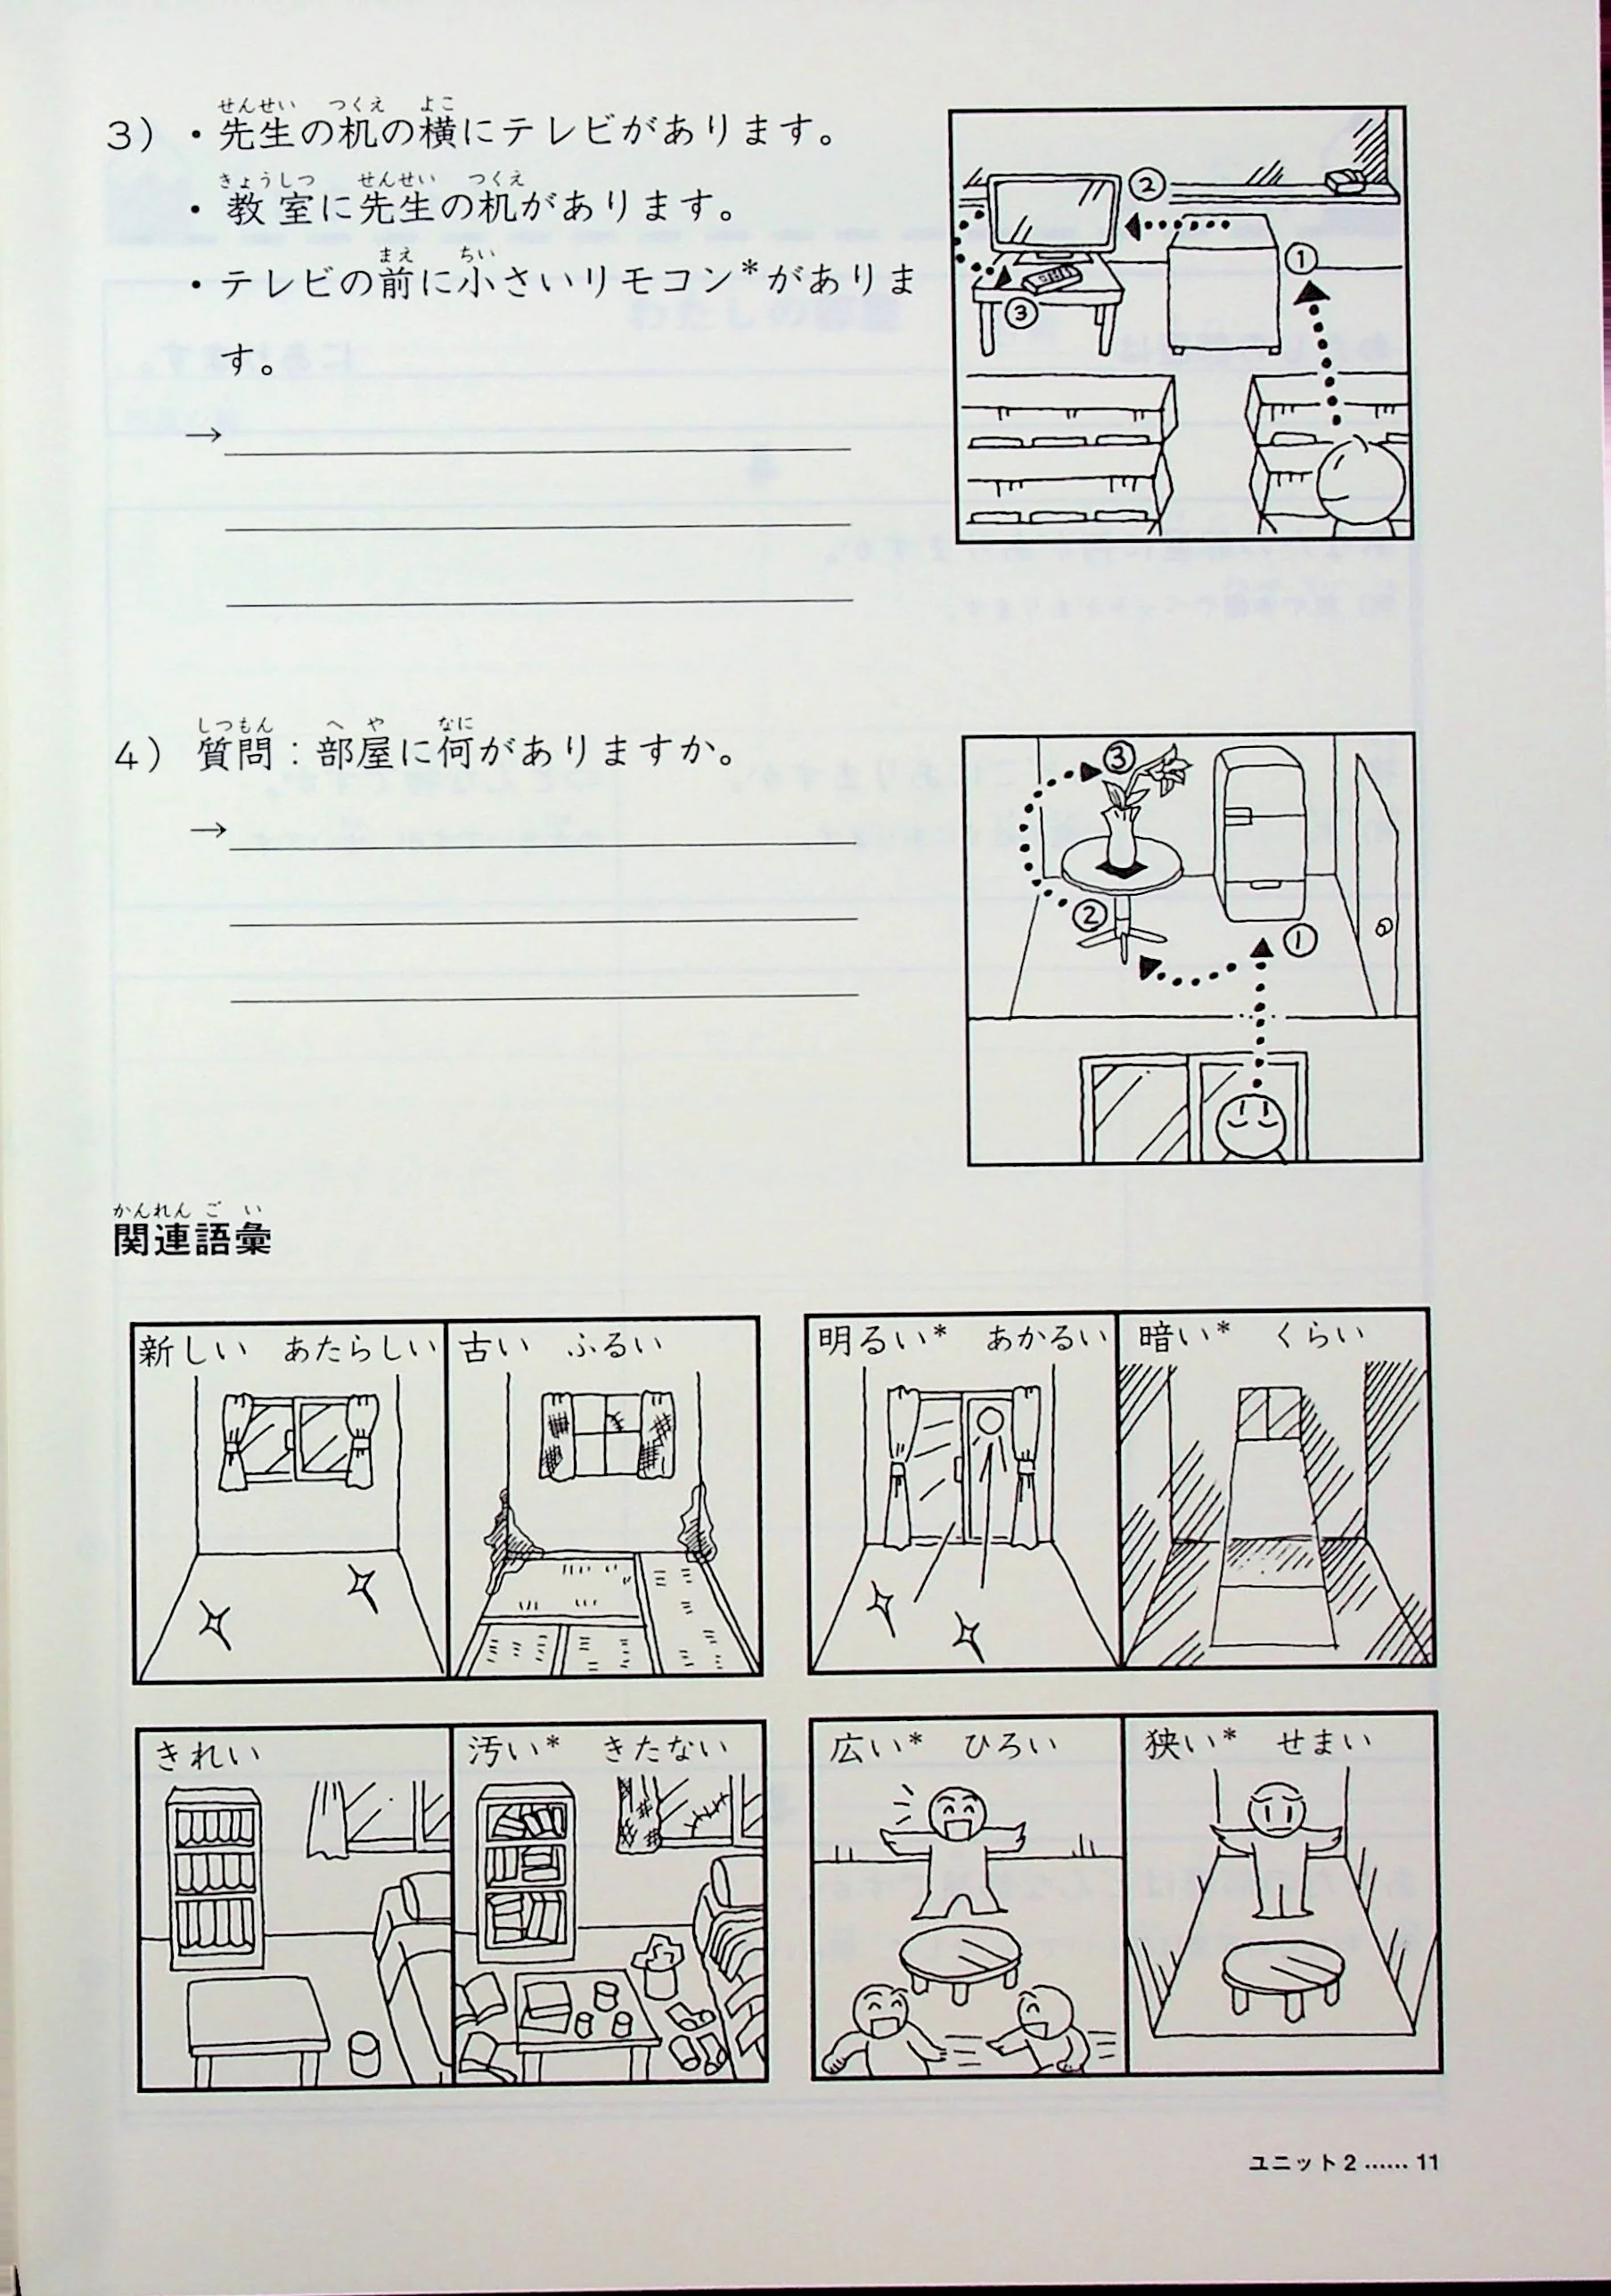 せんせい つくえ よこ
3）・先生の机の横にテレビがあります。
きょうしつ せんせい つくえ
・教室に先生の机があります。
まえ ちい
・テレビの前に小さいリモコン*がありま
す。
→
②
①
③
しつもん へ や なに
4） 質問：部屋に何がありますか。
→
③
②
①
かんれん ご い
関連語彙
新しい あたらしい
古い ふるい
明るい* あかるい
暗い* くらい
きれい
汚い* きたない
広い* ひろい
狭い* せまい
ユニット2……11